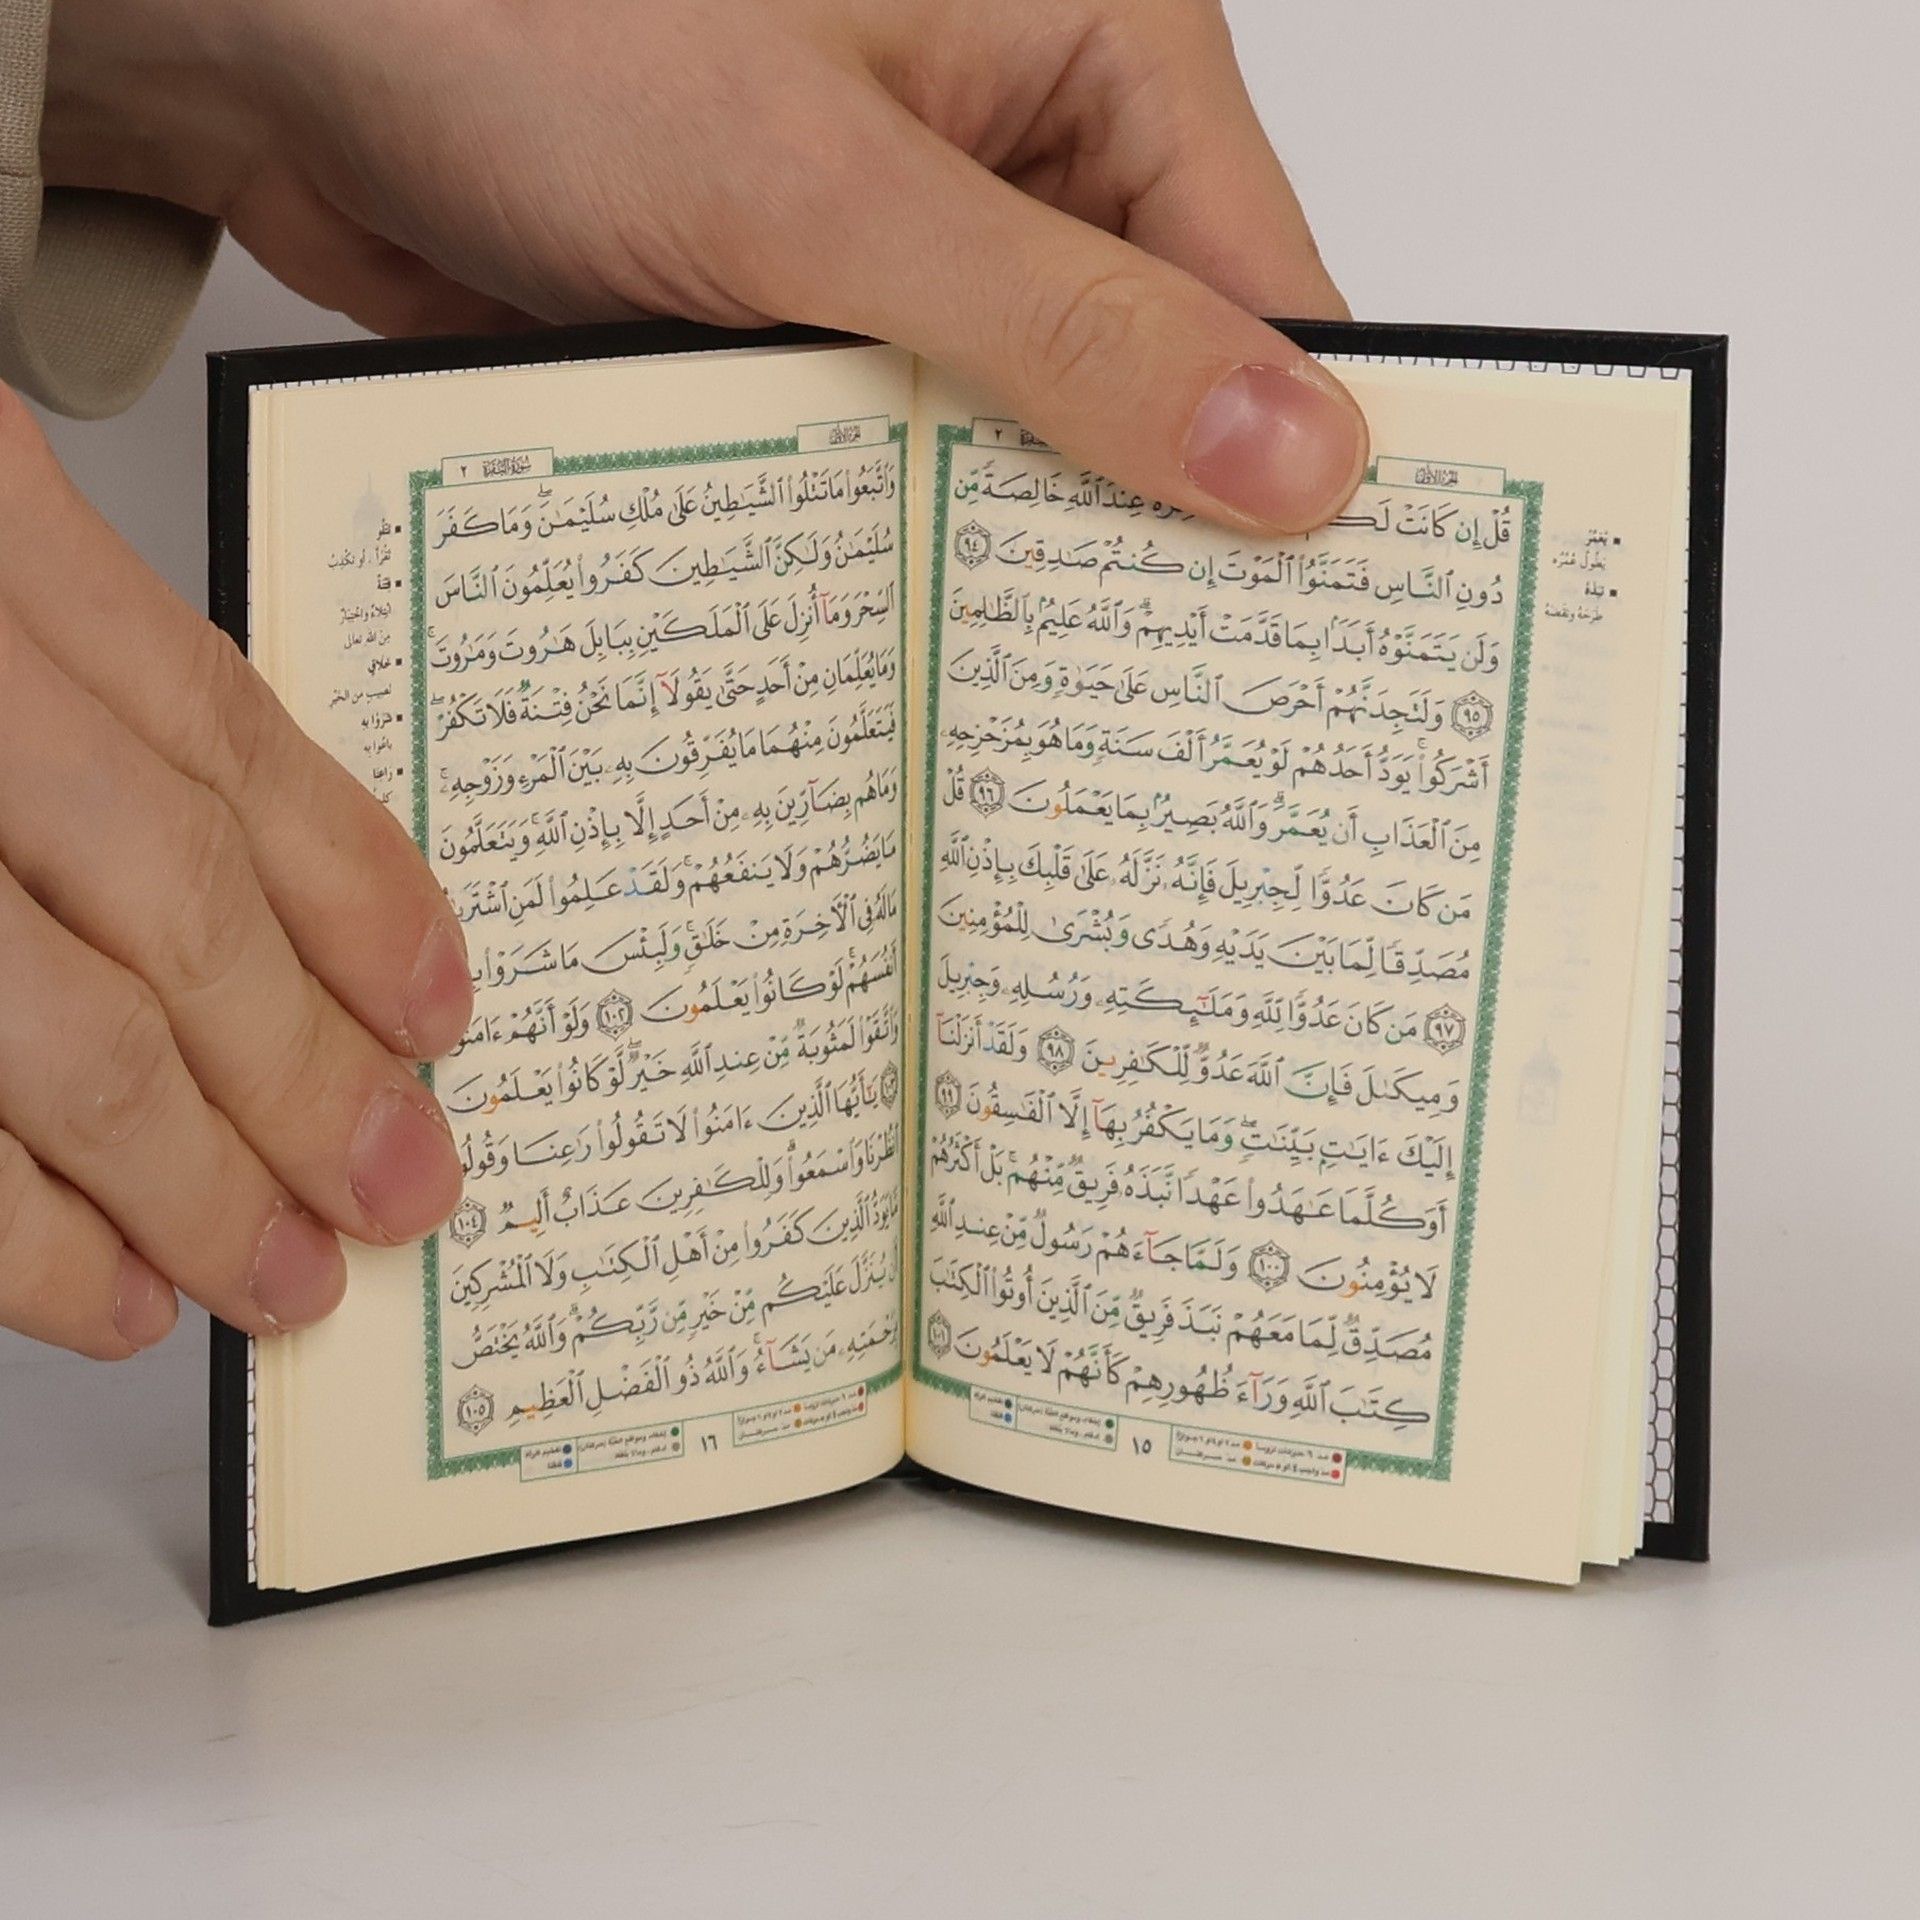 ٢
الجزء الأول
قُلْ إِن كَانَتْ عِندَ ٱللَّهِ خَالِصَةً مِّن
دُونِ ٱلنَّاسِ فَتَمَنَّوُا۟ ٱلْمَوْتَ إِن كُنتُمْ صَـٰدِقِينَ ٩٤
وَلَن يَتَمَنَّوْهُ أَبَدًۢا بِمَا قَدَّمَتْ أَيْدِيهِمْ ۗ وَٱللَّهُ عَلِيمٌۢ بِٱلظَّـٰلِمِينَ
٩٥ وَلَتَجِدَنَّهُمْ أَحْرَصَ ٱلنَّاسِ عَلَىٰ حَيَوٰةٍ وَمِنَ ٱلَّذِينَ
أَشْرَكُوا۟ ۚ يَوَدُّ أَحَدُهُمْ لَوْ يُعَمَّرُ أَلْفَ سَنَةٍ وَمَا هُوَ بِمُزَحْزِحِهِۦ
مِنَ ٱلْعَذَابِ أَن يُعَمَّرَ ۗ وَٱللَّهُ بَصِيرٌۢ بِمَا يَعْمَلُونَ ٩٦ قُلْ
مَن كَانَ عَدُوًّا لِّجِبْرِيلَ فَإِنَّهُۥ نَزَّلَهُۥ عَلَىٰ قَلْبِكَ بِإِذْنِ ٱللَّهِ
مُصَدِّقًا لِّمَا بَيْنَ يَدَيْهِ وَهُدًى وَبُشْرَىٰ لِلْمُؤْمِنِينَ
٩٧ مَن كَانَ عَدُوًّا لِّلَّهِ وَمَلَـٰٓئِكَتِهِۦ وَرُسُلِهِۦ وَجِبْرِيلَ
وَمِيكَىٰلَ فَإِنَّ ٱللَّهَ عَدُوٌّ لِّلْكَـٰفِرِينَ ٩٨ وَلَقَدْ أَنزَلْنَآ
إِلَيْكَ ءَايَـٰتٍۭ بَيِّنَـٰتٍ ۖ وَمَا يَكْفُرُ بِهَآ إِلَّا ٱلْفَـٰسِقُونَ ٩٩
أَوَكُلَّمَا عَـٰهَدُوا۟ عَهْدًا نَّبَذَهُۥ فَرِيقٌ مِّنْهُم ۚ بَلْ أَكْثَرُهُمْ
لَا يُؤْمِنُونَ ١٠٠ وَلَمَّا جَآءَهُمْ رَسُولٌ مِّنْ عِندِ ٱللَّهِ
مُصَدِّقٌ لِّمَا مَعَهُمْ نَبَذَ فَرِيقٌ مِّنَ ٱلَّذِينَ أُوتُوا۟ ٱلْكِتَـٰبَ
كِتَـٰبَ ٱللَّهِ وَرَآءَ ظُهُورِهِمْ كَأَنَّهُمْ لَا يَعْلَمُونَ ١٠١
يُعَمَّرُ
يَطُولُ عُمُرُه
نَبَذَهُ
طَرَحَهُ ونَقَضَهُ
١٥
الجزء الأول
سورة البقرة ٢
وَٱتَّبَعُوا۟ مَا تَتْلُوا۟ ٱلشَّيَـٰطِينُ عَلَىٰ مُلْكِ سُلَيْمَـٰنَ ۖ وَمَا كَفَرَ
سُلَيْمَـٰنُ وَلَـٰكِنَّ ٱلشَّيَـٰطِينَ كَفَرُوا۟ يُعَلِّمُونَ ٱلنَّاسَ
ٱلسِّحْرَ وَمَآ أُنزِلَ عَلَى ٱلْمَلَكَيْنِ بِبَابِلَ هَـٰرُوتَ وَمَـٰرُوتَ ۚ
وَمَا يُعَلِّمَانِ مِنْ أَحَدٍ حَتَّىٰ يَقُولَآ إِنَّمَا نَحْنُ فِتْنَةٌ فَلَا تَكْفُرْ ۖ
فَيَتَعَلَّمُونَ مِنْهُمَا مَا يُفَرِّقُونَ بِهِۦ بَيْنَ ٱلْمَرْءِ وَزَوْجِهِۦ ۚ
وَمَا هُم بِضَآرِّينَ بِهِۦ مِنْ أَحَدٍ إِلَّا بِإِذْنِ ٱللَّهِ ۚ وَيَتَعَلَّمُونَ
مَا يَضُرُّهُمْ وَلَا يَنفَعُهُمْ ۚ وَلَقَدْ عَلِمُوا۟ لَمَنِ ٱشْتَرَىٰهُ
مَا لَهُۥ فِى ٱلْـَٔاخِرَةِ مِنْ خَلَـٰقٍ ۚ وَلَبِئْسَ مَا شَرَوْا۟
أَنفُسَهُمْ ۚ لَوْ كَانُوا۟ يَعْلَمُونَ ١٠٢ وَلَوْ أَنَّهُمْ ءَامَنُوا۟
وَٱتَّقَوْا۟ لَمَثُوبَةٌ مِّنْ عِندِ ٱللَّهِ خَيْرٌ ۖ لَّوْ كَانُوا۟ يَعْلَمُونَ
١٠٣ يَـٰٓأَيُّهَا ٱلَّذِينَ ءَامَنُوا۟ لَا تَقُولُوا۟ رَٰعِنَا وَقُولُوا۟
ٱنظُرْنَا وَٱسْمَعُوا۟ ۗ وَلِلْكَـٰفِرِينَ عَذَابٌ أَلِيمٌ ١٠٤
مَّا يَوَدُّ ٱلَّذِينَ كَفَرُوا۟ مِنْ أَهْلِ ٱلْكِتَـٰبِ وَلَا ٱلْمُشْرِكِينَ
أَن يُنَزَّلَ عَلَيْكُم مِّنْ خَيْرٍ مِّن رَّبِّكُمْ ۗ وَٱللَّهُ يَخْتَصُّ
بِرَحْمَتِهِۦ مَن يَشَآءُ ۚ وَٱللَّهُ ذُو ٱلْفَضْلِ ٱلْعَظِيمِ ١٠٥
تَقْرَأُ، أو تَكْذِبُ
فِتْنَةٌ
ابْتِلَاءٌ واخْتِبَارٌ
مِنَ الله تعالى
خَلَاقٍ
نَصِيبٍ من الخَيْرِ
شَرَوْا بِهِ
بَاعُوا بِهِ
رَاعِنَا
١٦